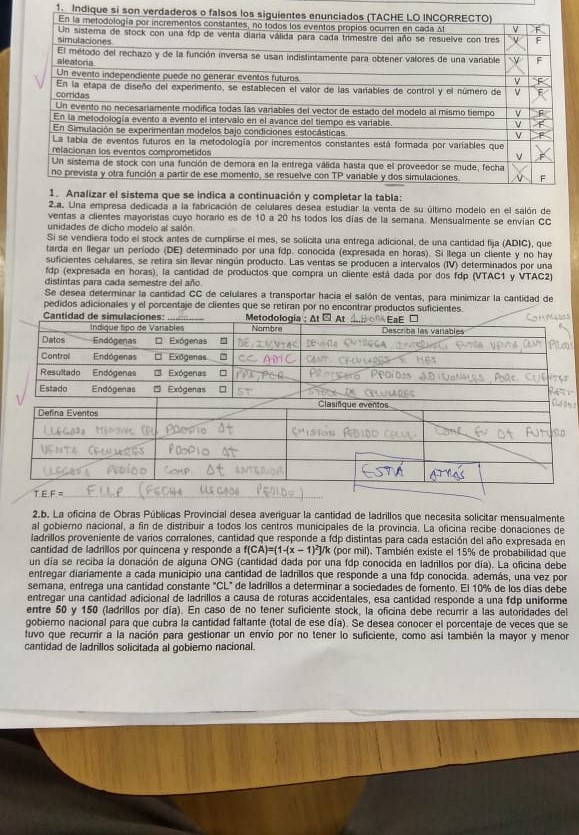 1. Indique si son verdaderos o falsos los siguientes enunciados (TACHE LO INCORRECTO)
En la metodología por incrementos constantes, no todos los eventos propios ocurren en cada Δt V F
Un sistema de stock con una fdp de venta diaria válida para cada trimestre del año se resuelve con tres
simulaciones. V F
El método del rechazo y de la función inversa se usan indistintamente para obtener valores de una variable
aleatoria. V F
Un evento independiente puede no generar eventos futuros. V F
En la etapa de diseño del experimento, se establecen el valor de las variables de control y el número de
corridas V F
Un evento no necesariamente modifica todas las variables del vector de estado del modelo al mismo tiempo V F
En la metodología evento a evento el intervalo en el avance del tiempo es variable. V F
En Simulación se experimentan modelos bajo condiciones estocásticas. V F
La tabla de eventos futuros en la metodología por incrementos constantes está formada por variables que
relacionan los eventos comprometidos V F
Un sistema de stock con una función de demora en la entrega válida hasta que el proveedor se mude, fecha
no prevista y otra función a partir de ese momento, se resuelve con TP variable y dos simulaciones. V F
1. Analizar el sistema que se indica a continuación y completar la tabla:
2.a. Una empresa dedicada a la fabricación de celulares desea estudiar la venta de su último modelo en el salón de
ventas a clientes mayoristas cuyo horario es de 10 a 20 hs todos los días de la semana. Mensualmente se envían CC
unidades de dicho modelo al salón.
Si se vendiera todo el stock antes de cumplirse el mes, se solicita una entrega adicional, de una cantidad fija (ADIC), que
tarda en llegar un período (DE) determinado por una fdp. conocida (expresada en horas). Si llega un cliente y no hay
suficientes celulares, se retira sin llevar ningún producto. Las ventas se producen a intervalos (IV) determinados por una
fdp (expresada en horas), la cantidad de productos que compra un cliente está dada por dos fdp (VTAC1 y VTAC2)
distintas para cada semestre del año.
Se desea determinar la cantidad CC de celulares a transportar hacia el salón de ventas, para minimizar la cantidad de
pedidos adicionales y el porcentaje de clientes que se retiran por no encontrar productos suficientes.
Cantidad de simulaciones: Metodología : Δt ☒ Δt EaE ☐
Indique tipo de Variables Nombre Describa las variables
Datos Endógenas ☐ Exógenas ☒ DE, IV, VTAC
Control Endógenas ☐ Exógenas ☒ CC ADIC CANT. CELULARES X MES
Resultado Endógenas ☒ Exógenas ☐ PEDIDOS ADICIONALES, PORC. CLIENTES
Estado Endógenas ☒ Exógenas ☐ ST STOCK DE CELULARES
Defina Eventos Clasifique eventos
LLEGADA MENSUAL CEL PROPIO Δt EMISIÓN PEDIDO CELUL. COMP. EN Δt FUTURO
VENTA CELULARES PROPIO Δt
LLEGADA PEDIDO COMP. Δt ANTERIOR ESTÁ ATRÁS
T.E.F = FLLP (FECHA LLEGADA PEDIDO)
2.b. La oficina de Obras Públicas Provincial desea averiguar la cantidad de ladrillos que necesita solicitar mensualmente
al gobierno nacional, a fin de distribuir a todos los centros municipales de la provincia. La oficina recibe donaciones de
ladrillos proveniente de varios corralones, cantidad que responde a fdp distintas para cada estación del año expresada en
cantidad de ladrillos por quincena y responde a f(CA)=(1-(x – 1)²]/k (por mil). También existe el 15% de probabilidad que
un día se reciba la donación de alguna ONG (cantidad dada por una fdp conocida en ladrillos por día). La oficina debe
entregar diariamente a cada municipio una cantidad de ladrillos que responde a una fdp conocida. además, una vez por
semana, entrega una cantidad constante "CL" de ladrillos a determinar a sociedades de fomento. El 10% de los días debe
entregar una cantidad adicional de ladrillos a causa de roturas accidentales, esa cantidad responde a una fdp uniforme
entre 50 y 150 (ladrillos por día). En caso de no tener suficiente stock, la oficina debe recurrir a las autoridades del
gobierno nacional para que cubra la cantidad faltante (total de ese día). Se desea conocer el porcentaje de veces que se
tuvo que recurrir a la nación para gestionar un envío por no tener lo suficiente, como así también la mayor y menor
cantidad de ladrillos solicitada al gobierno nacional.